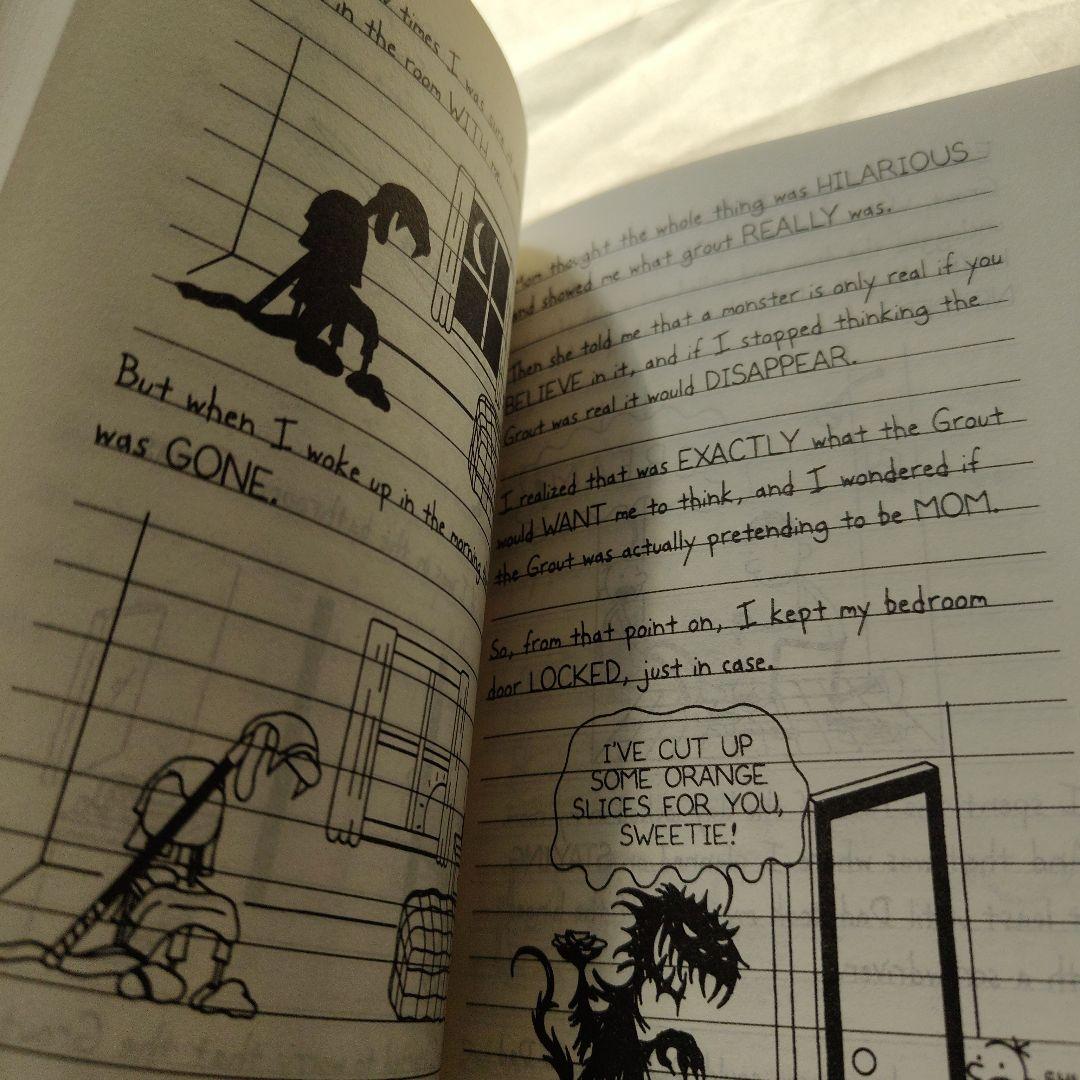 times I was sure
in the room WITH me.
But when I woke up in the morning,
was GONE.
Mom thought the whole thing was HILARIOUS
and showed me what grout REALLY was.
Then she told me that a monster is only real if you
BELIEVE in it, and if I stopped thinking the
Grout was real it would DISAPPEAR.
I realized that was EXACTLY what the Grout
would WANT me to think, and I wondered if
the Grout was actually pretending to be MOM.
So, from that point on, I kept my bedroom
door LOCKED, just in case.
I'VE CUT UP
SOME ORANGE
SLICES FOR YOU,
SWEETIE!